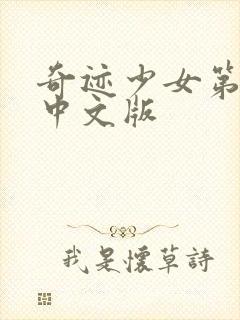 奇迹少女第
中文版
我是懷草詩